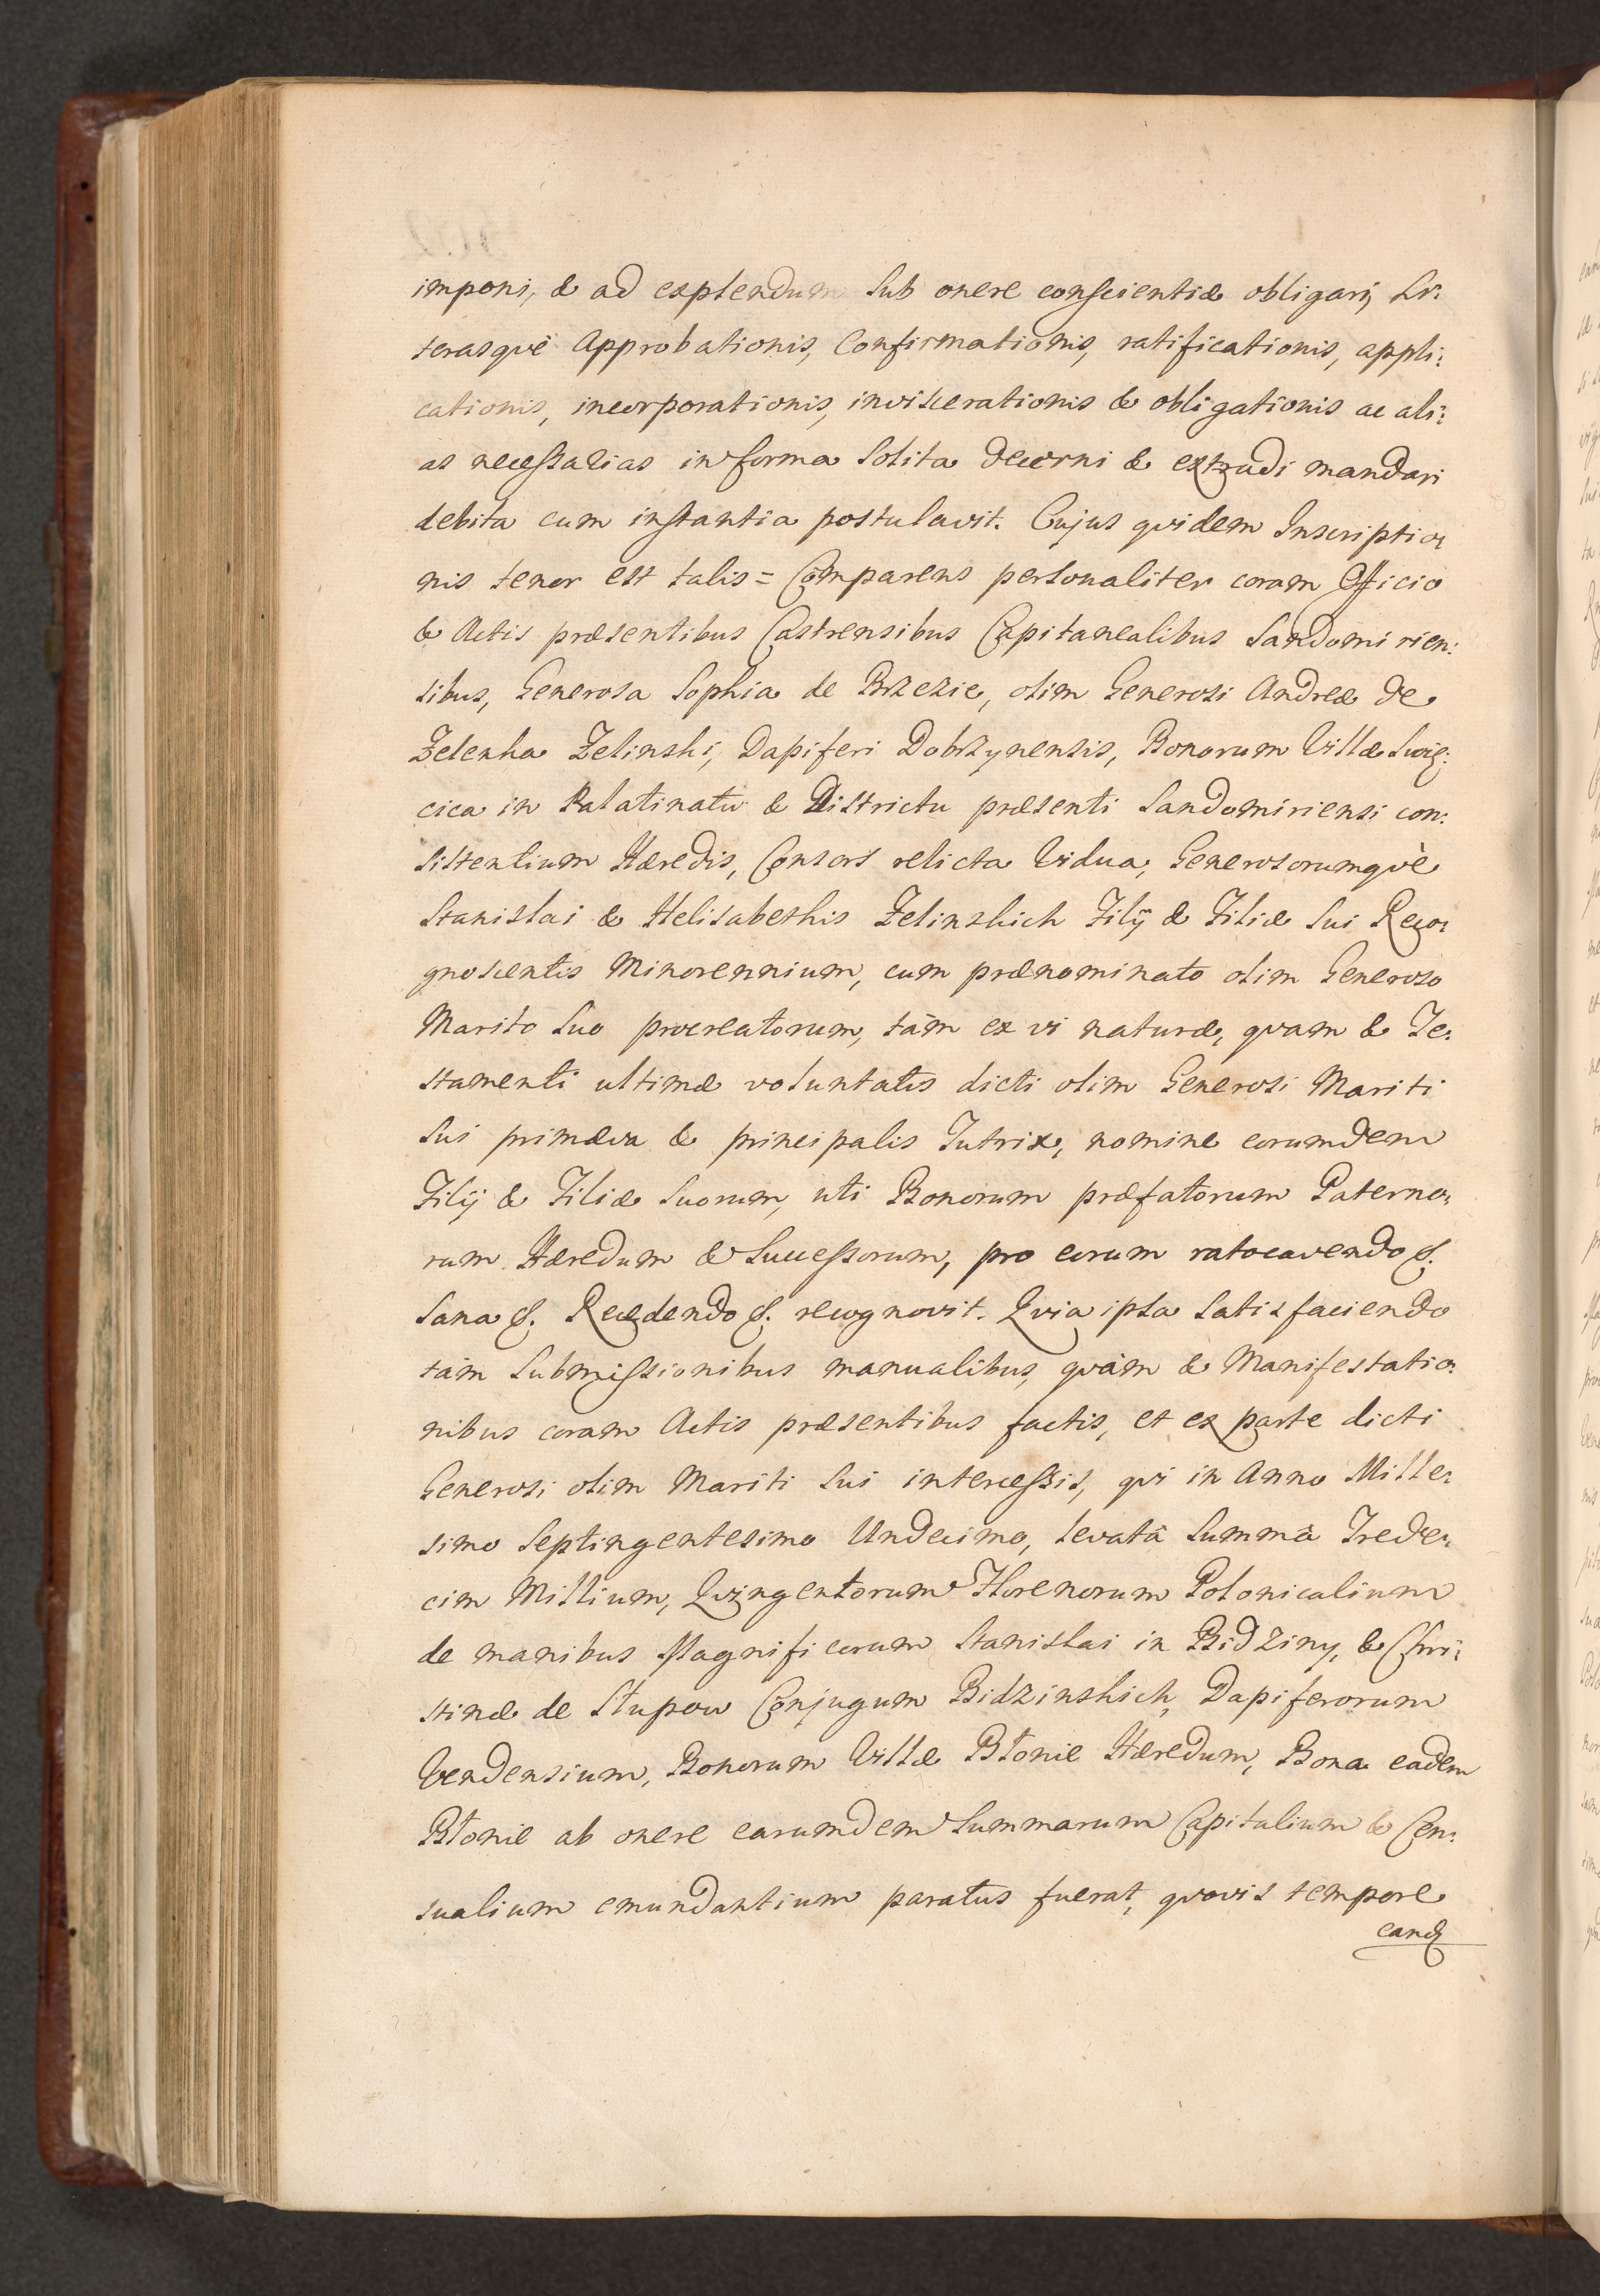 imponi, & ad explendum sub onere conscientiæ obligari, Li:
terasqvè Approbationis, Confirmationis, ratificationis, appli:
cationis, incorporationis, inviscerationis & obligationis ac ali:
as necessarias in forma solita decerni & extradi mandari
debita cum instantia postulavit. Cujus qvidem Inscriptio:
nis tenor est talis = Comparens personaliter coram Officio
& Actis præsentibus Castrensibus Capitanealibus Sandomirien:
sibus, Generosa Sophia de Brzezie, olim Generosi Andreæ de
Zelenka Zelinski, Dapiferi Dobrzynensis, Bonorum Villæ Swię:
cica in Palatinatu & Districtu præsenti Sandomiriensi con:
sistentium Hæredis, Consors relicta Vidua, Generosorumqvè
Stanislai & Helisabethis Zelinskich Filij & Filiæ sui Reco:
gnoscentis Minorennium, cum prænominato olim Generoso
Marito suo procreatorum, tàm ex vi naturæ, qvam & Te:
stamenti ultimæ voluntatis dicti olim Generosi Mariti
sui primæva & principalis Tutrix, nomine eorumdem
Filij & Filiæ suorum, uti Bonorum præfatorum Paterno:
rum Hæredum & Successorum, pro eorum ratocavendo &.
Sana &. Recedendo &. recognovit. Qvia ipsa satisfaciendo
tàm submissionibus manualibus, qvàm & Manifestatio:
nibus coram Actis præsentibus factis, et ex parte dicti
Generosi olim Mariti sui intercessis, qvi in Anno Mille:
simo Septingentesimo Undecimo, levatâ summâ Trede:
cim Millium, Qvingentorum Florenorum Polonicalium
de manibus Magnificorum Stanislai in Bidziny, & Chri:
stinæ de Słupow Conjugum Bidzinskich, Dapiferorum
Vendensium, Bonorum Villæ Błonie Hæredum, Bona eadem
Błonie ab onere earumdem Summarum Capitalium & Cen:
sualium emundantium paratus fuerat, qvovis tempore
eand